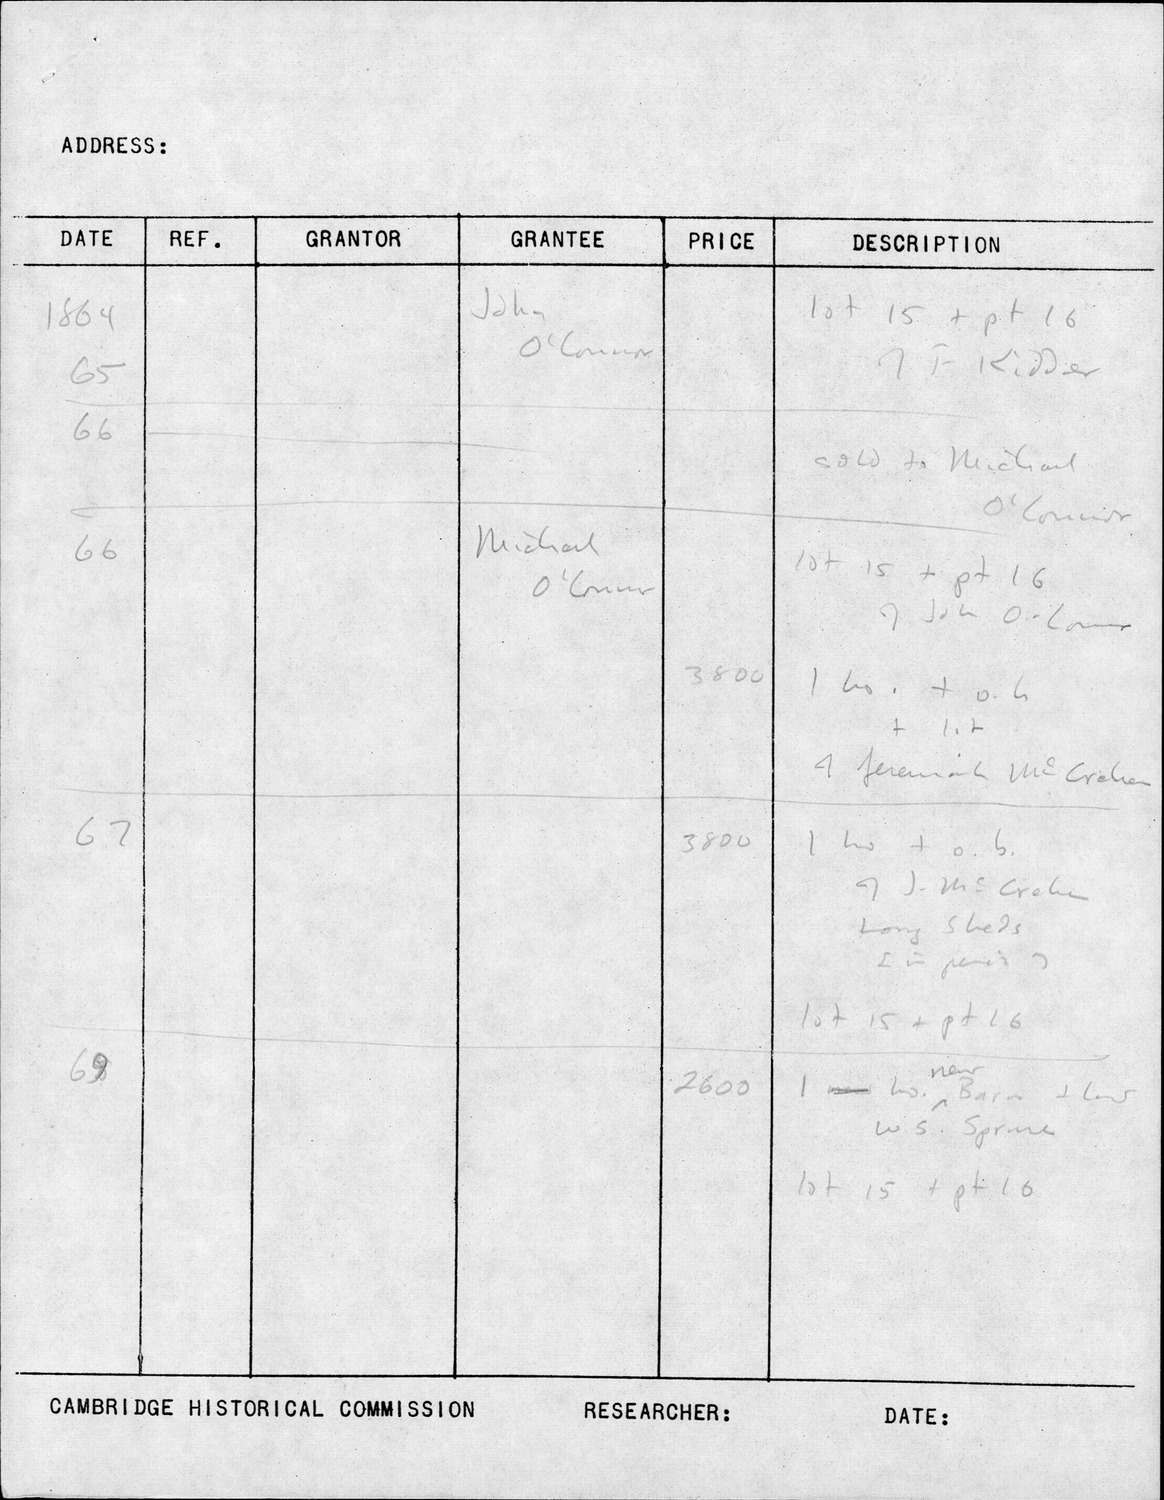 ADDRESS:
DATE REF. GRANTOR GRANTEE PRICE DESCRIPTION
1864 John lot 15 + pt 16
O'Connor
65 of F Kidder
66
sold to Michael
O'Connor
66 Michael lot 15 + pt 16
O'Connor of John O'Connor
3800 1 ho. + o.b
+ lot
of Jeremiah McCrehan
67 3800 1 ho + o.b.
of J. McCrehan
Long Sheds
lot 15 + pt 16
69 new
2600 1 ho. ^ Barn + land
w.s. Spruce
lot 15 + pt 16
CAMBRIDGE HISTORICAL COMMISSION RESEARCHER: DATE: